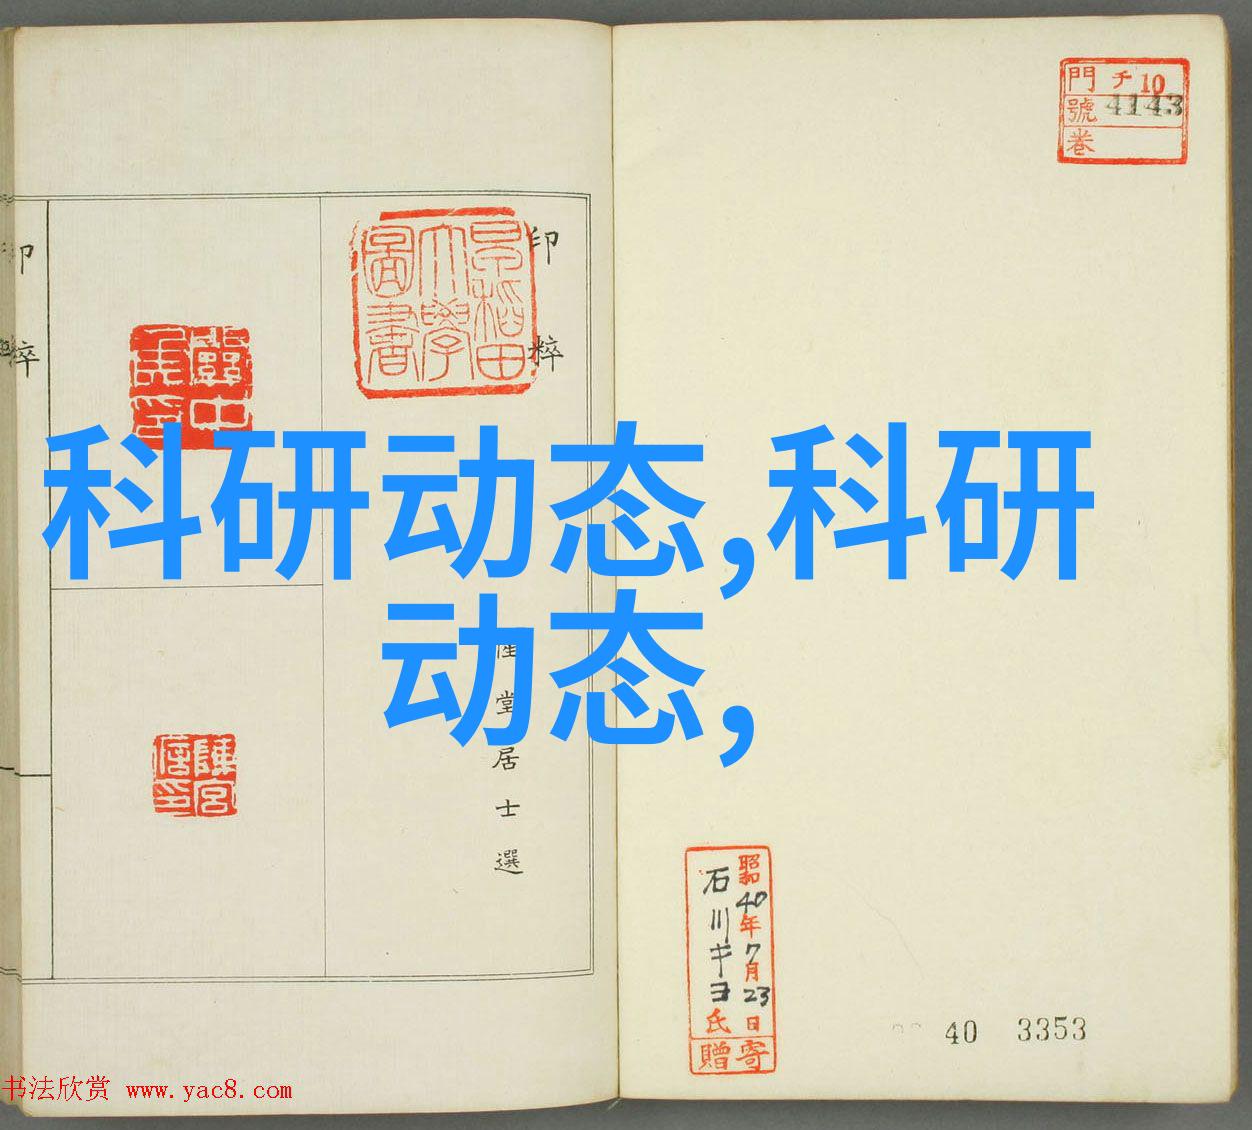 門 チ 10
號 4143
卷
印粹
印粹
早稻田
大學
圖書
科研动态,科研
动态,
堂居士選
陳宮
信印
昭和40年7月23日
石川キヨ氏
寄贈
40 3353
书法欣赏 www.yac8.com